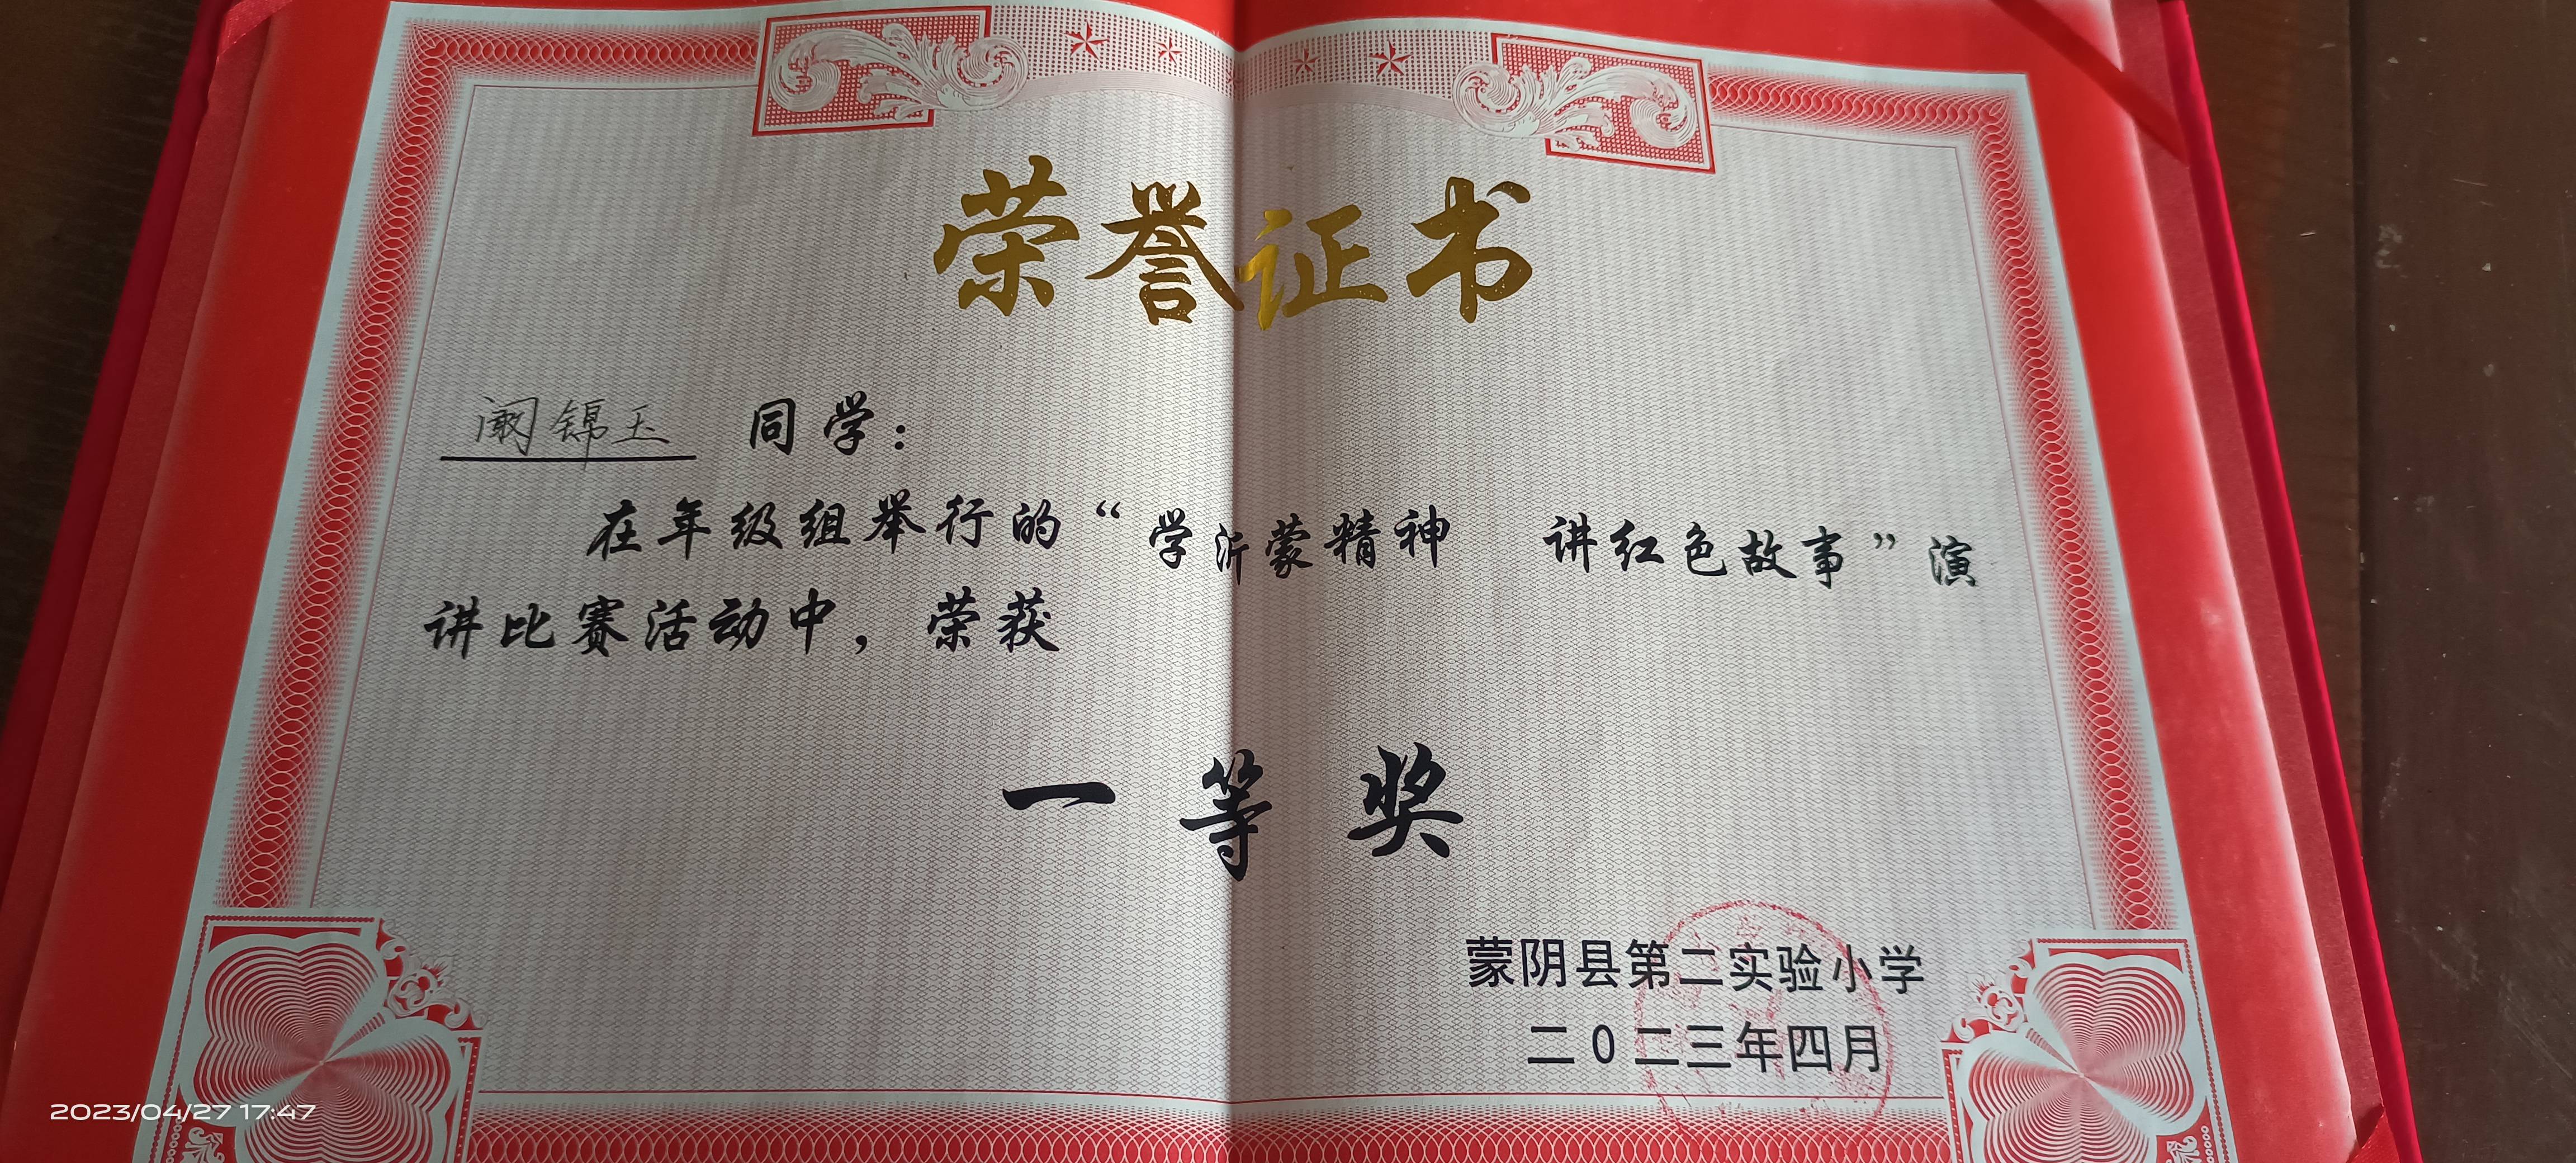 荣誉证书
阚锦玉 同学：
在年级组举行的“学沂蒙精神 讲红色故事”演
讲比赛活动中，荣获
一等奖
蒙阴县第二实验小学
二0二三年四月
2023/04/27 17:47